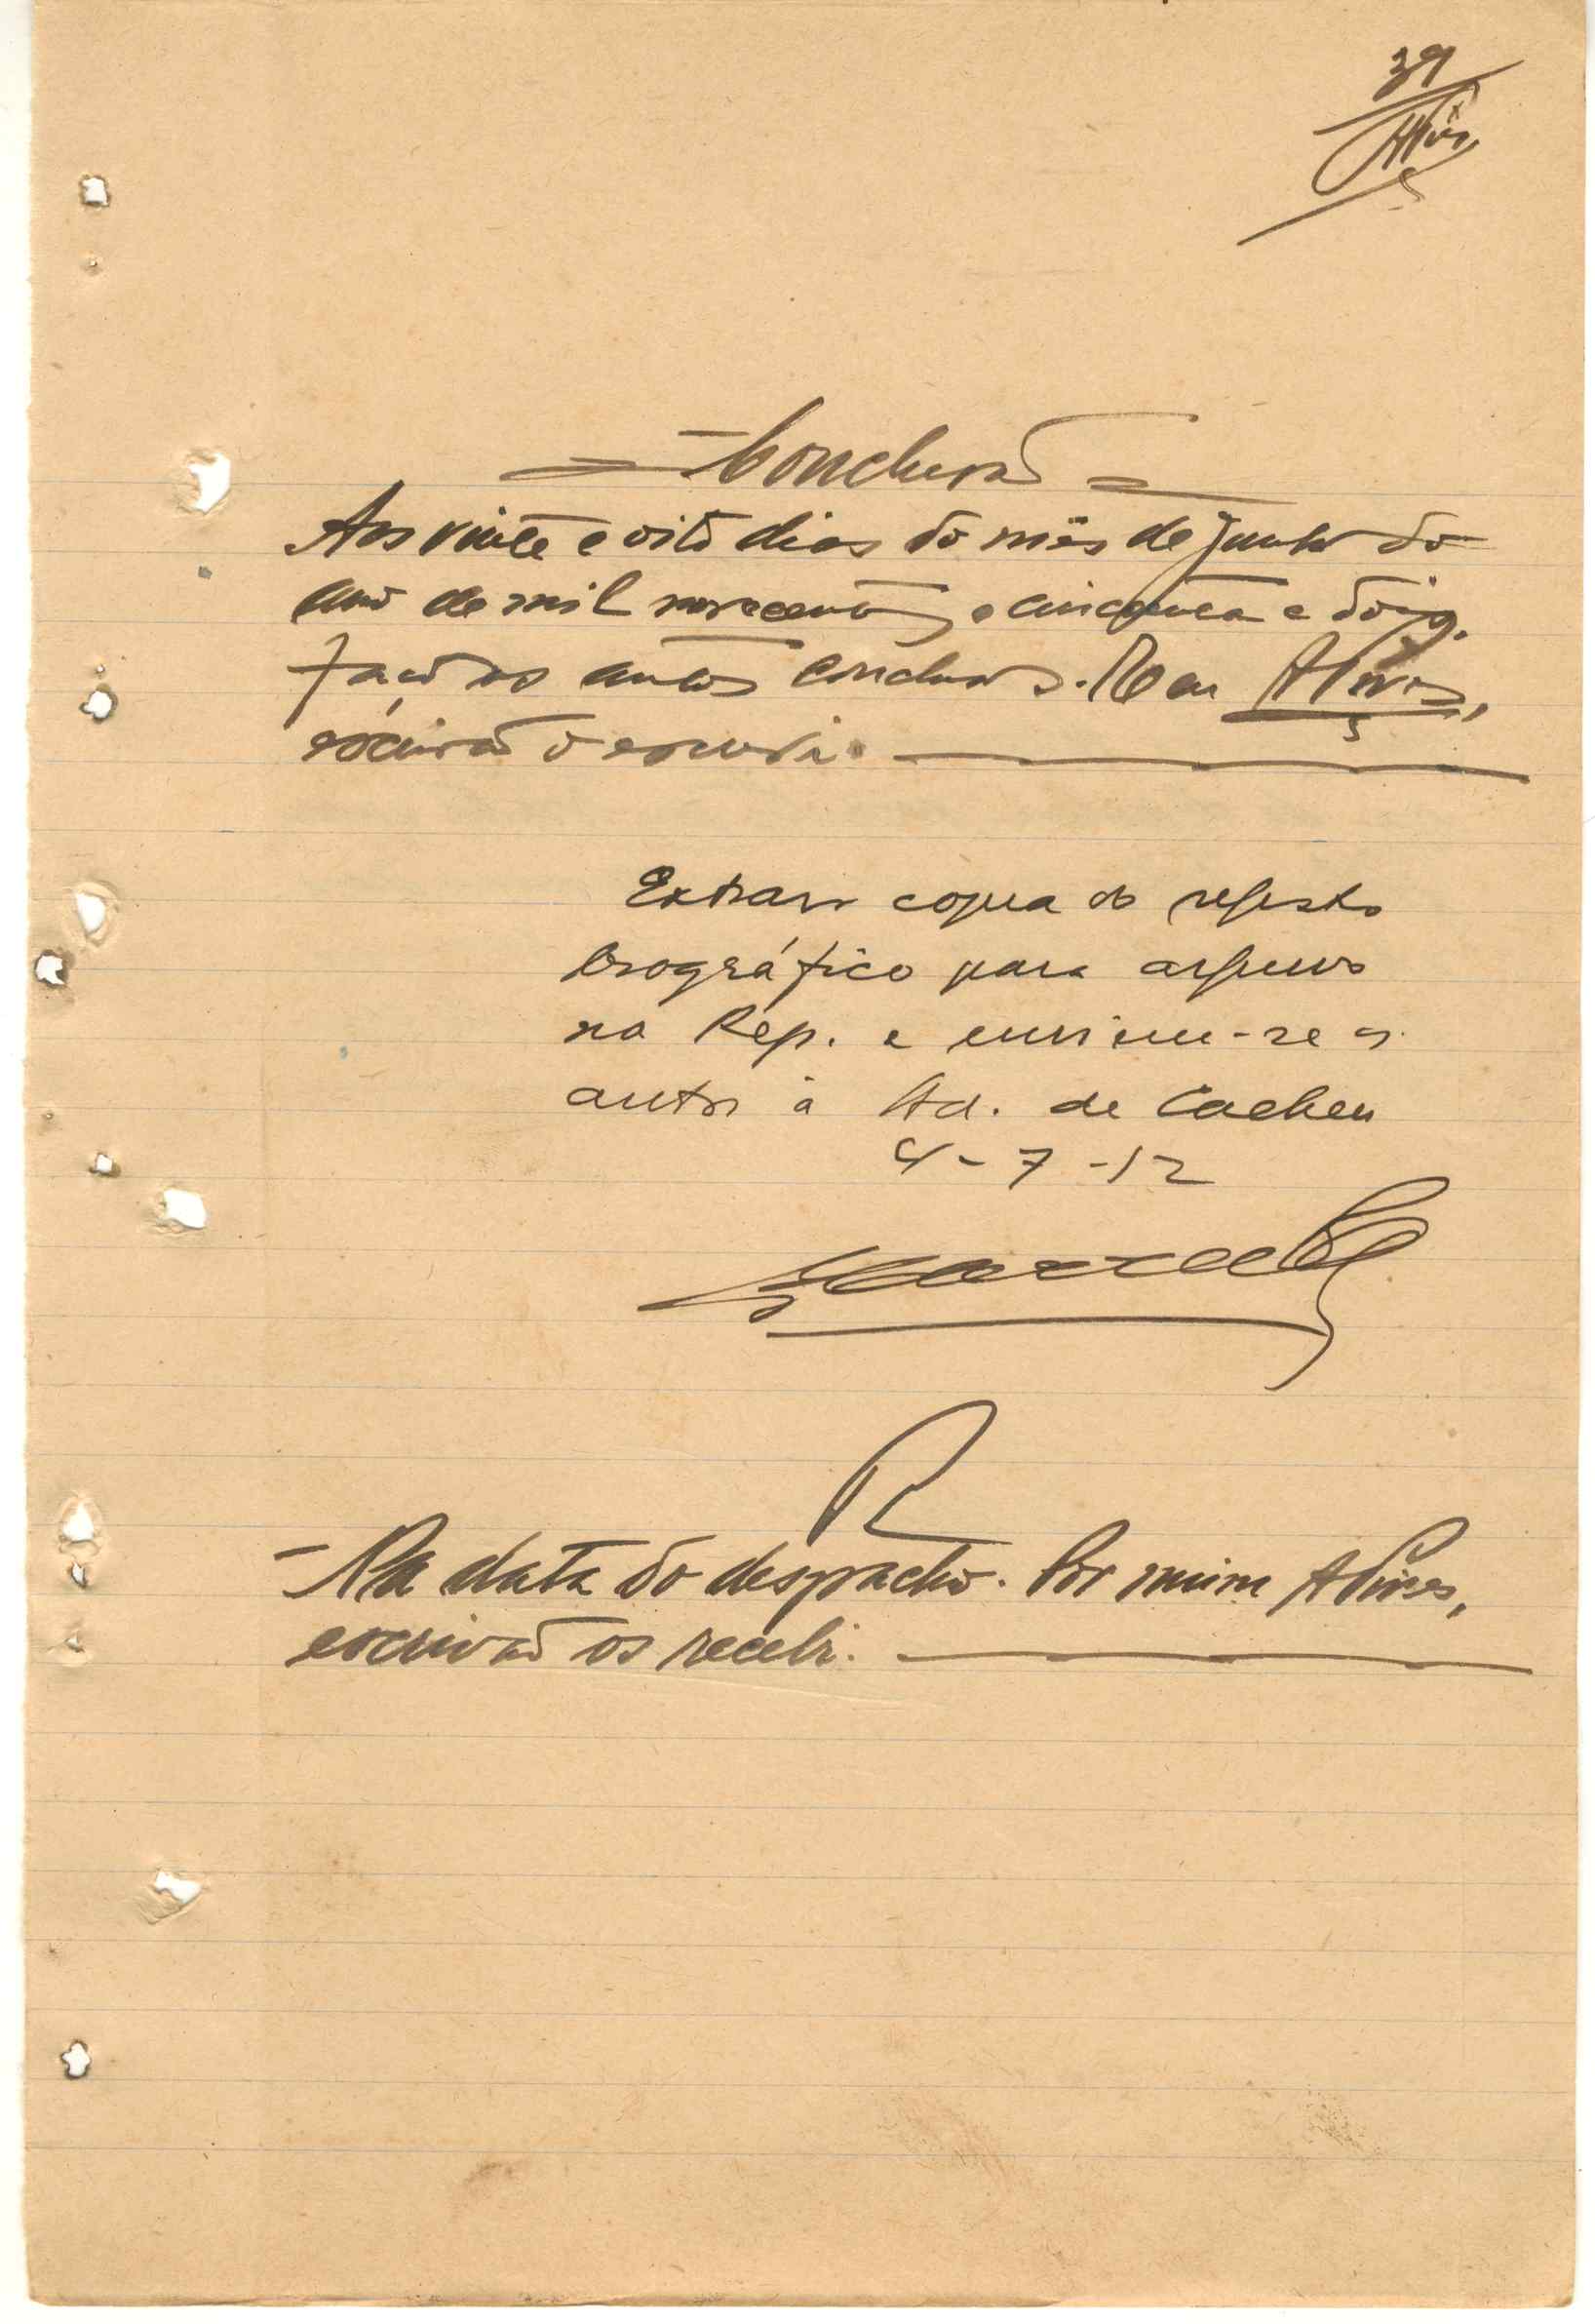 39
APires,
= Conclusão =
Aos vinte e oito dias do mês de Junho do
ano de mil novecentos e cincoenta e dois,
faço os autos conclusos. E eu APires,
escrivão o escrevi.
Extrair copia do registo
biográfico para arquivo
na Rep. e enviem-se os
autos à Ad. de Cacheu
4-7-52
R
- Na data do despacho. Por mim APires,
escrivão os recebi.